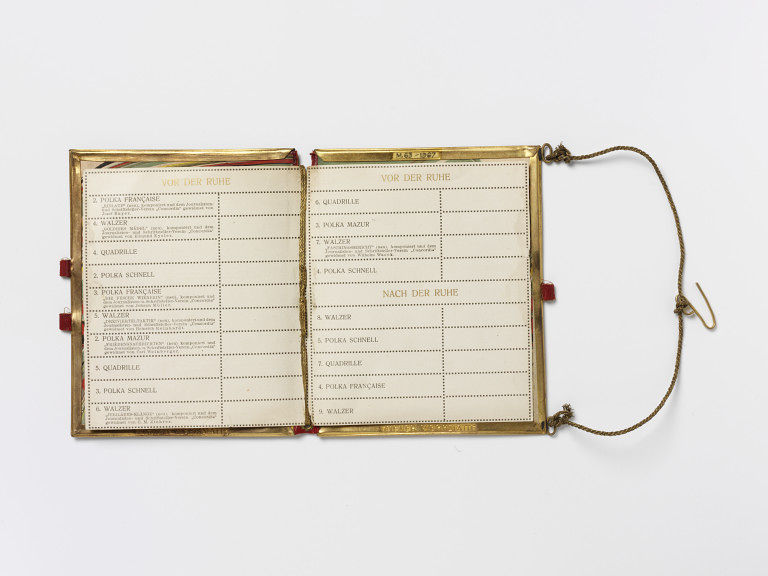 VOR DER RUHE
2. POLKA FRANÇAISE
(neu), komponiert und dem Journalisten-
und Schriftsteller-Verein „Concordia“ gewidmet von
4. WALZER
„GOLDIGES MÄDEL“ (neu), komponiert und dem
Journalisten- und Schriftsteller-Verein „Concordia“
gewidmet von
4. QUADRILLE
2. POLKA SCHNELL
3. POLKA FRANÇAISE
„DIE FESCHE WIENERIN“ (neu), komponiert und
dem Journalisten- u. Schriftsteller-Verein „Concordia“
gewidmet von Johann
5. WALZER
(neu), komponiert und dem
Journalisten- und Schriftsteller-Verein „Concordia“
gewidmet von
2. POLKA MAZUR
(neu), komponiert und
dem Journalisten- u. Schriftsteller-Verein „Concordia“
gewidmet von Carl Weinberger.
5. QUADRILLE
3. POLKA SCHNELL
6. WALZER
(neu), komponiert und dem
Journalisten- und Schriftsteller-Verein „Concordia“
gewidmet von C. M. Ziehrer.
VOR DER RUHE
6. QUADRILLE
3. POLKA MAZUR
7. WALZER
„FASCHINGSBERICHT“ (neu), komponiert und dem
Journalisten- und Schriftsteller-Verein „Concordia“
gewidmet von Wilhelm Wacek.
4. POLKA SCHNELL
NACH DER RUHE
8. WALZER
5. POLKA SCHNELL
7. QUADRILLE
4. POLKA FRANÇAISE
9. WALZER